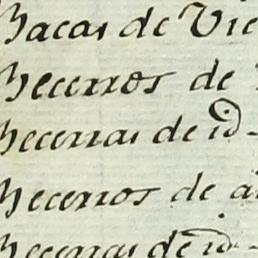 Bacas de Vie
Becerros de
Becerras de id
Becerros de a
Becerras de id